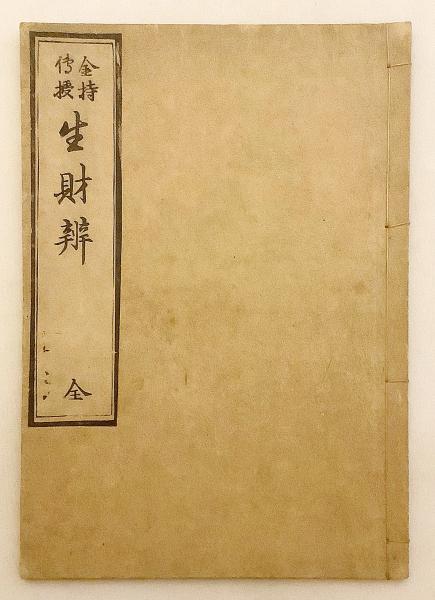 金持
傳授
生財辨
全